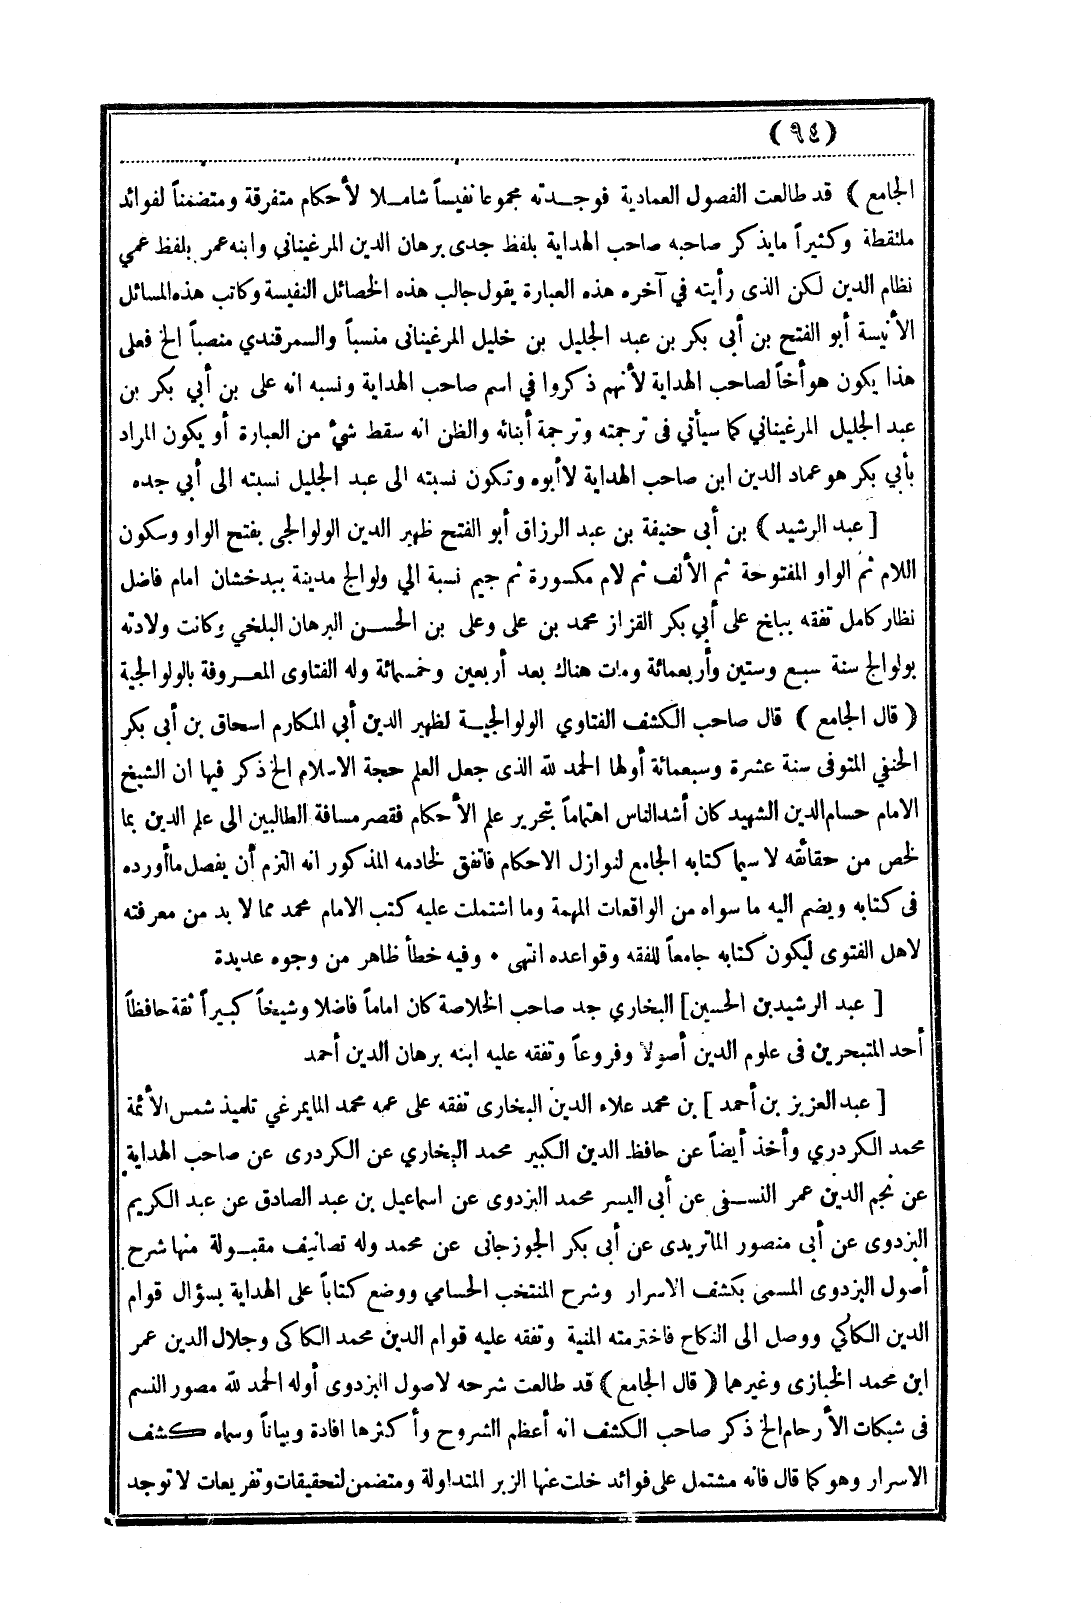 (٩٤)
الجامع ) قد طالعت الفصول العمادية فوجـدته مجموعا نفيساً شامـلا لأحكام متفرقة ومتضمناً لفوائد
ملتقطة وكثيراً مايذكر صاحبه صاحب الهداية بلفظ جدى برهان الدين المرغيناني وابنه عمر بلفظ عمي
نظام الدين لكن الذى رأيته في آخره هذه العبارة يقول جالب هذه الخصائل النفيسة وكاتب هذه المسائل
الأنيسة أبو الفتح بن أبي بكر بن عبد الجليل بن خليل المرغينانى منسباً والسمرقندي منصباً الخ فعلى
هذا يكون هو أخاً لصاحب الهداية لأنهم ذكروا في اسم صاحب الهداية ونسبه انه على بن أبي بكر بن
عبد الجليل المرغيناني كما سيأتي فى ترجمته وترجمة أبنائه والظن انه سقط شئ من العبارة أو يكون المراد
بأبي بكر هو عماد الدين ابن صاحب الهداية لاأبوه وتكون نسبته الى عبد الجليل نسبته الى أبي جده
[ عبد الرشيد ) بن أبي حنيفة بن عبد الرزاق أبو الفتح ظهير الدين الولوالجى بفتح الواو وسكون
اللام ثم الواو المفتوحة ثم الألف ثم لام مكسورة ثم جيم نسبة الي ولوالج مدينة ببدخشان امام فاضل
نظار كامل تفقه ببلخ على أبي بكر القزاز محمد بن على وعلى بن الحسـن البرهان البلخي وكانت ولادته
بولوالج سنة سبع وستين وأربعمائة ومات هناك بعد أربعين وخمسمائة وله الفتاوى المعـروفة بالولوالجية
( قال الجامع ) قال صاحب الكشف الفتاوي الولوالجيـة لظهير الدين أبي المكارم اسحاق بن أبى بكر
الحنفي المتوفى سنة عشرة وسبعمائة أولها الحمد لله الذى جعل العلم حجة الاسلام الخ ذكر فيها ان الشيخ
الامام حسام الدين الشهيد كان أشد الناس اهتماماً بتحرير علم الأحكام فقصر مسافة الطالبين الى علم الدين بما
لخص من حقائقه لا سيما كتابه الجامع لنوازل الاحكام فاتفق لخادمه المذكور انه التزم أن يفصل ماأورده
فى كتابه ويضم اليه ما سواه من الواقعات المهمة وما اشتملت عليه كتب الامام محمد مما لا بد من معرفته
لاهل الفتوى ليكون كتابه جامعاً للفقه وقواعده انتهى • وفيه خطأ ظاهر من وجوه عديدة
[ عبد الرشيد بن الحسين ] البخاري جد صاحب الخلاصة كان اماماً فاضلا وشيخاً كبيراً ثقة حافظاً
أحد المتبحرين فى علوم الدين أصولا وفروعاً وتفقه عليه ابنه برهان الدين أحمد
[ عبد العزيز بن أحمد ] بن محمد علاء الدين البخارى تفقه على عمه محمد المايمرغي تلميذ شمس الأئمة
محمد الكردري وأخذ أيضاً عن حافظ الدين الكبير محمد البخاري عن الكردرى عن صاحب الهداية
عن نجم الدين عمر النسـفى عن أبى اليسر محمد البزدوى عن اسماعيل بن عبد الصادق عن عبد الكريم
البزدوى عن أبى منصور الماتريدى عن أبى بكر الجوزجانى عن محمد وله تصانيف مقبـولة منها شرح
أصول البزدوى المسمى بكشف الاسرار وشرح المنتخب الحسامي ووضع كتاباً على الهداية بسؤال قوام
الدين الكاكي ووصل الى النكاح فاخترمته المنية وتفقه عليه قوام الدين محمد الكاكى وجلال الدين عمر
ابن محمد الخبازى وغيرهما ( قال الجامع ) قد طالعت شرحه لاصول البزدوى أوله الحمد لله مصور النسم
فى شبكات الأرحام الخ ذكر صاحب الكشف انه أعظم الشروح وأكثرها افادة وبياناً وسماه كشف
الاسرار وهو كما قال فانه مشتمل على فوائد خلت عنها الزبر المتداولة ومتضمن لتحقيقات وتفريعات لا توجد